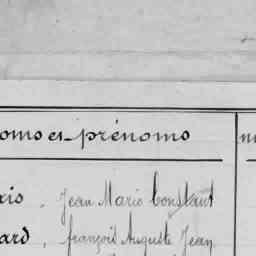 oms et prénoms
xis, Jean Marie Constant
ard, françois Auguste Jean